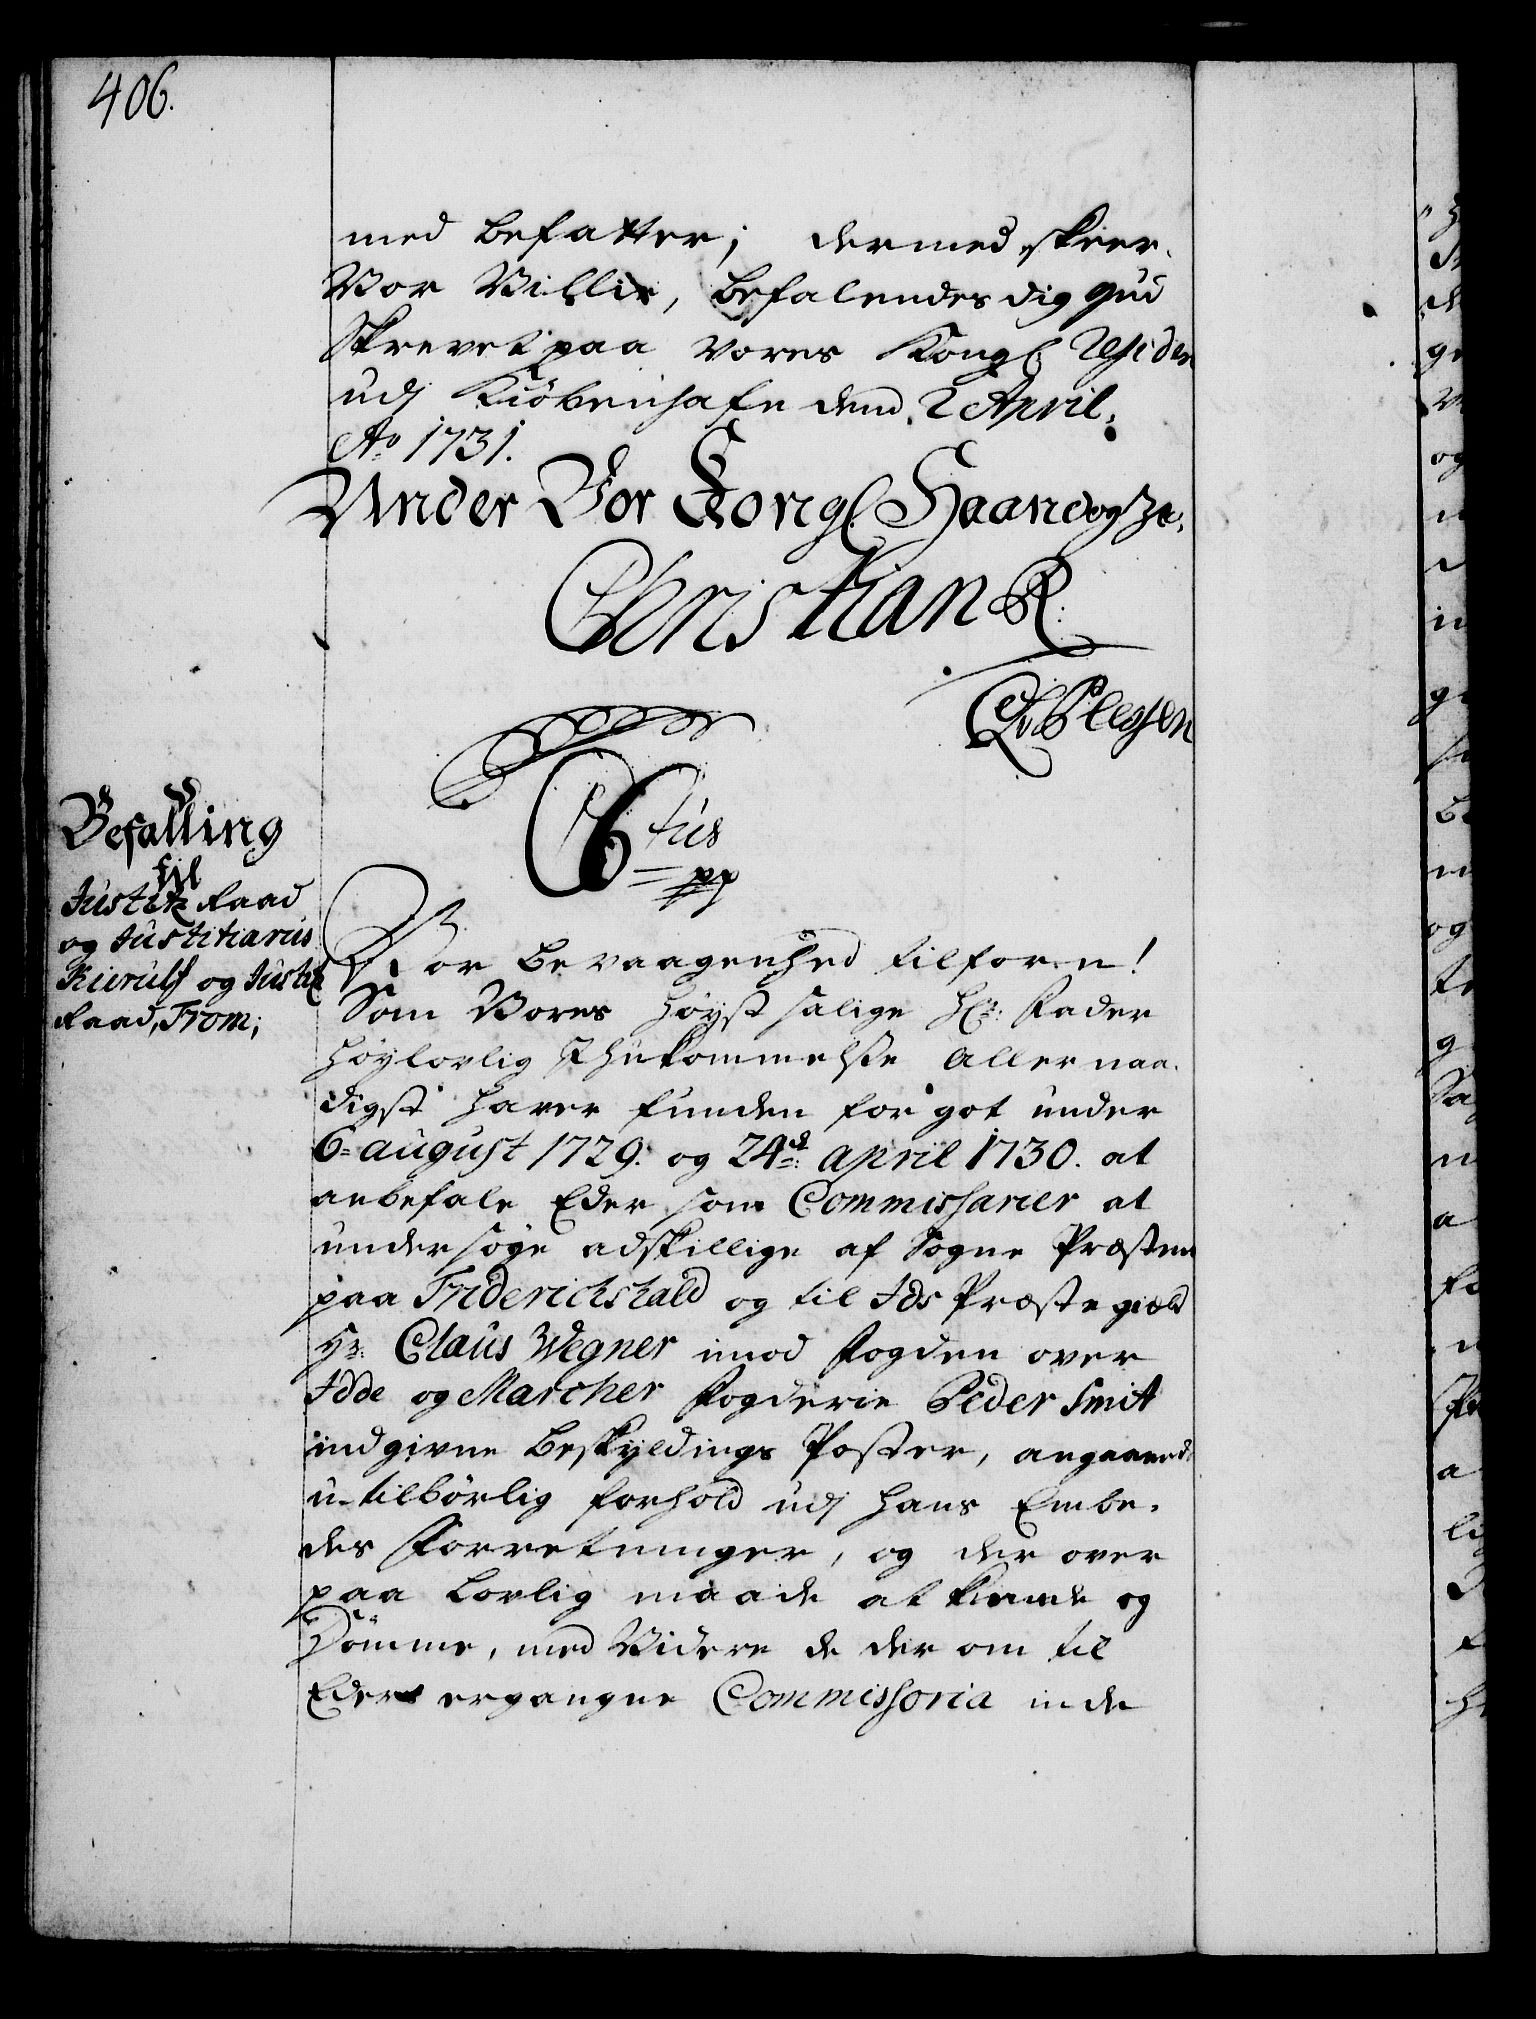 406.
med befatter; dermed skeer
Vor Villie, befalendes dig Gud
Skrevet paa Vores Kongl. Residen
udj Kiöbenhafn dend 2 April
Ao 1731.
Under Vor Kongl. Haand og Ze.
Christian R.
Plessen
C6tus
pp
Befalling
til
Justitz Raad
og Justitiarius
Kierulf og Justitz
Raad, From;
Vor bevaagenhed tilforn!
Som Vores höyst salige Hr: Fader
höylovlig Ihukommelse allernaa-
digst haver funden for got under
6= august 1729. og 24de april 1730. at
anbefale Eder som Commissarier at
undersöge adskillige af Sogne Præsten
paa Friderichshald og til Ids Præstegield
Hr: Claus Wegner imod Fogden over
Idde og Marcher Fogderie Peder Smit
indgivne beskyldings Poster, angaaende
u-tilbörlig forhold udj hans Embe-
des Forretninger, og der over
paa lovlig maade at kiende og
Dömme, med Videre de der om til
Eder ergangne Commissoria inde